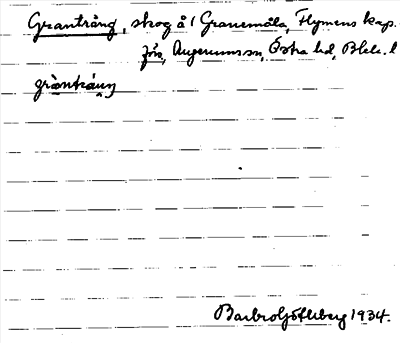 Grantrång, skog å 1 Granemåla, Flymens kap.
förs, Augerums sn, Östra hd, Blek. l
gràntráŋŋ
Barbro Götlberg 1934.